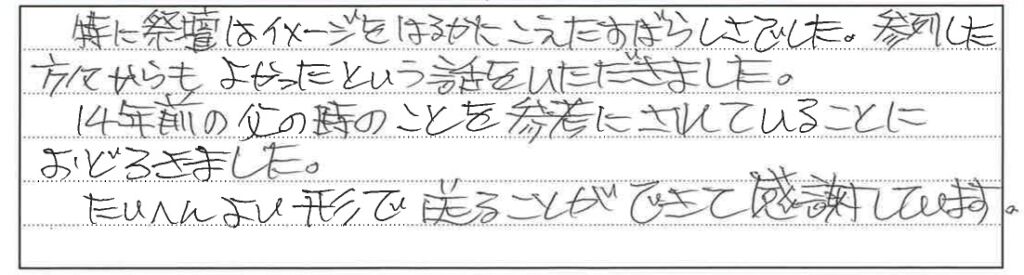 特に祭壇はイメージをはるかにこえたすばらしさでした。参列した
方々からもよかったという話をいただきました。
14年前の父の時のことを参考にされていることに
おどろきました。
たいへんよい形で送ることができて感謝しています。